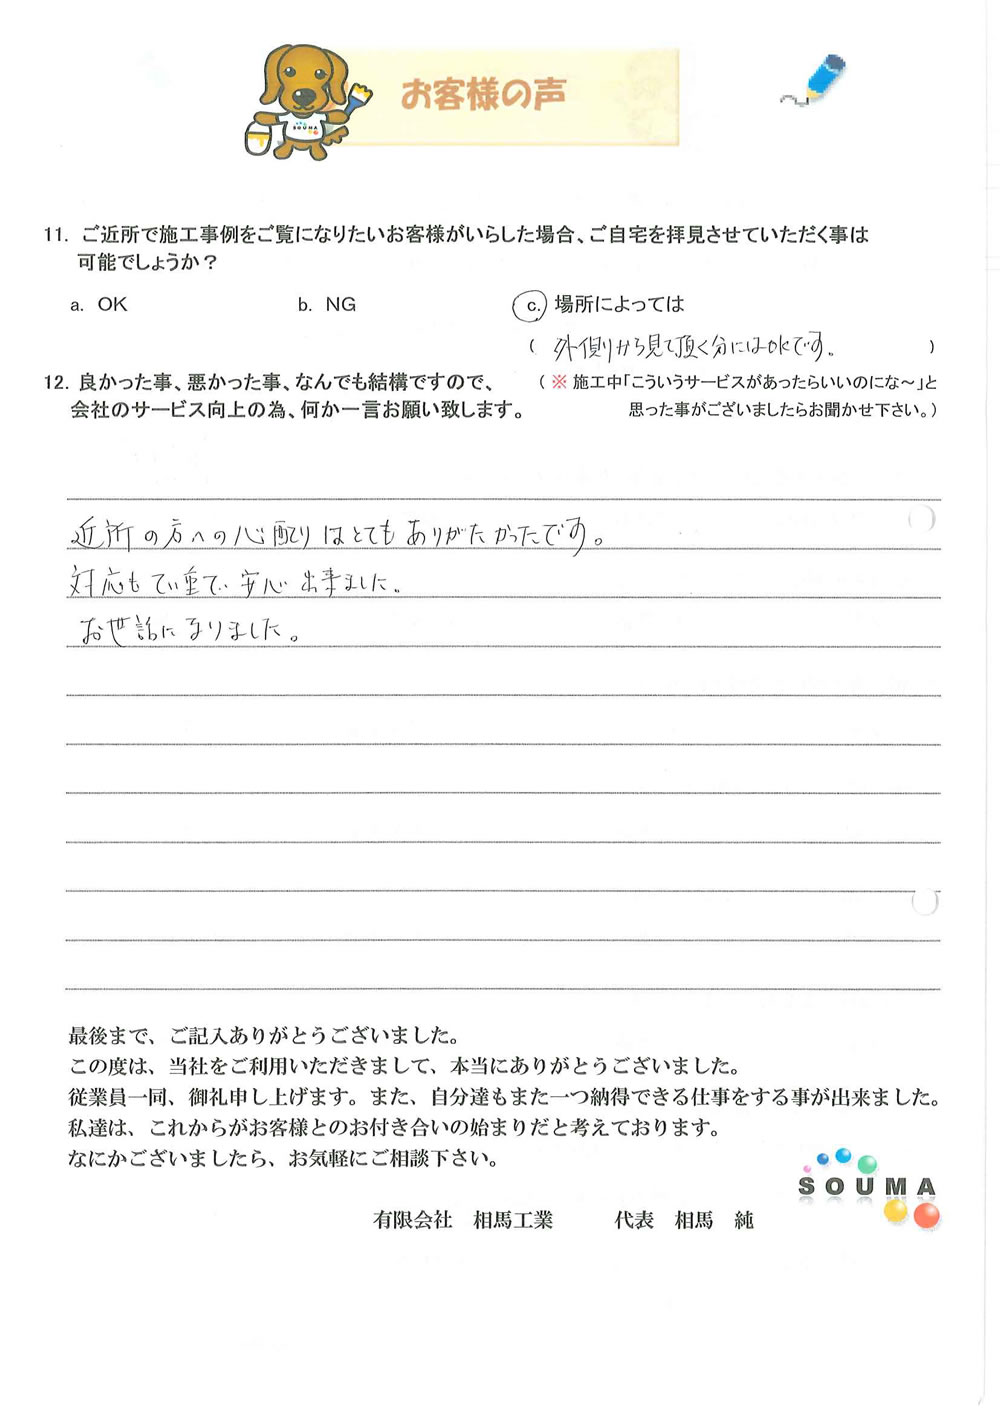 お客様の声
SOUMA
11. ご近所で施工事例をご覧になりたいお客様がいらした場合、ご自宅を拝見させていただく事は
可能でしょうか？
a. OK b. NG c. 場所によっては
( 外側から見て頂く分にはOKです。 )
12. 良かった事、悪かった事、なんでも結構ですので、 (※ 施工中「こういうサービスがあったらいいのにな～」と
会社のサービス向上の為、何か一言お願い致します。 思った事がございましたらお聞かせ下さい。)
近所の方への心配りはとてもありがたかったです。
対応もてい重で安心出来ました。
お世話になりました。
最後まで、ご記入ありがとうございました。
この度は、当社をご利用いただきまして、本当にありがとうございました。
従業員一同、御礼申し上げます。また、自分達もまた一つ納得できる仕事をする事が出来ました。
私達は、これからがお客様とのお付き合いの始まりだと考えております。
なにかございましたら、お気軽にご相談下さい。
SOUMA
有限会社 相馬工業 代表 相馬 純